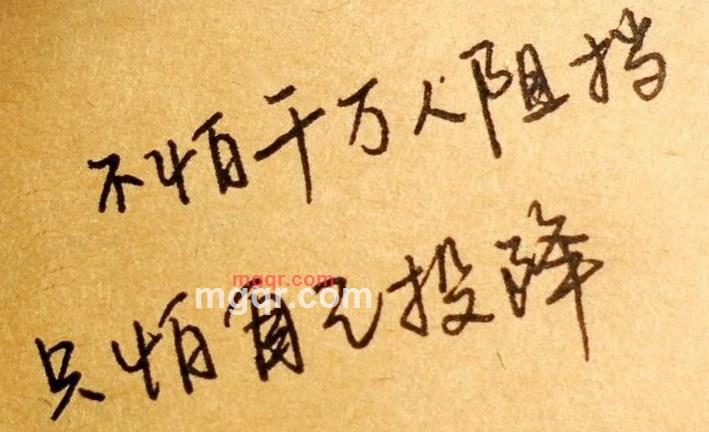 不怕千万人阻挡
只怕自己投降
mgqr.com
mgqr.com